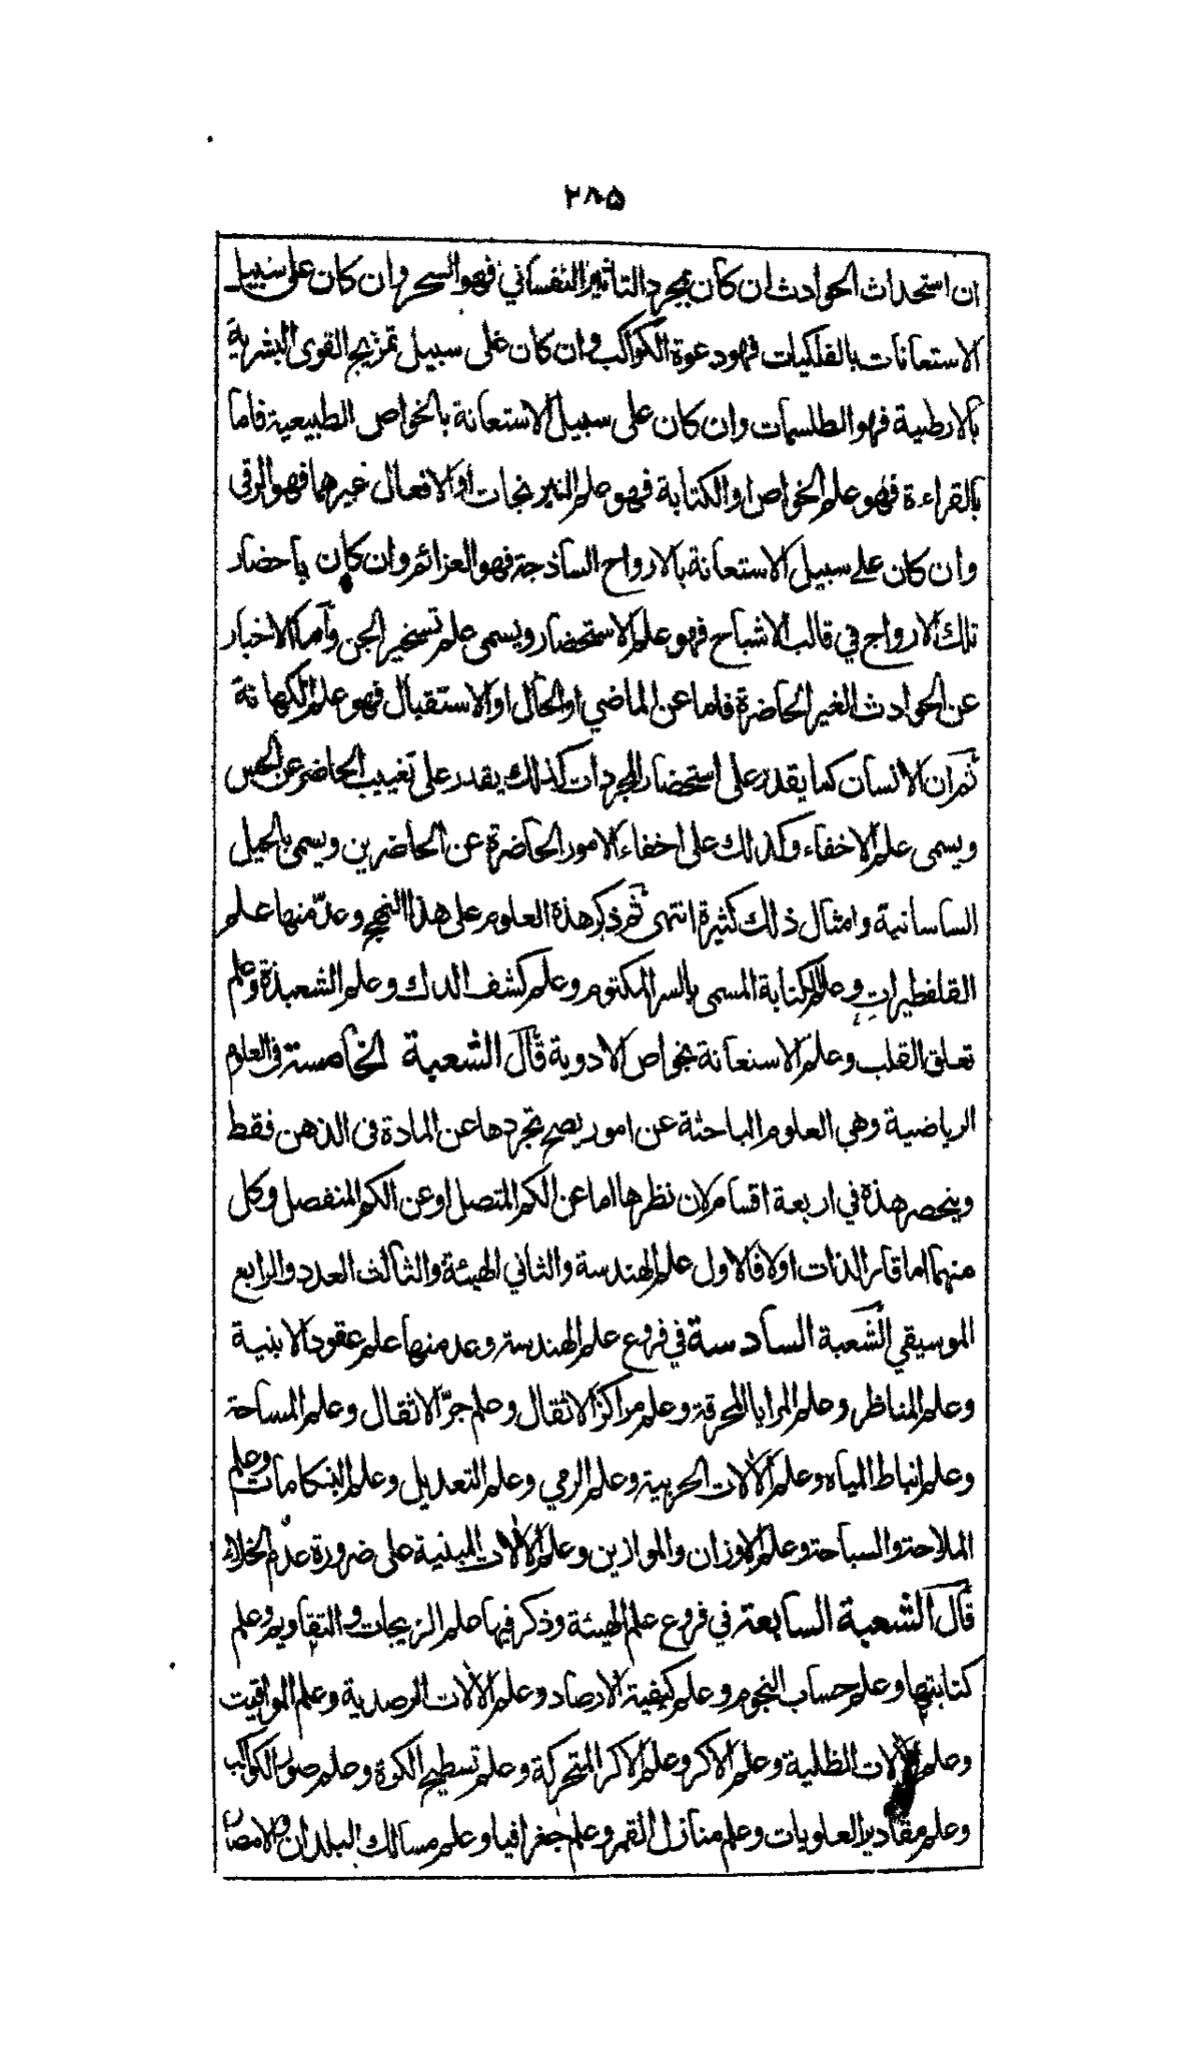 ۲۸۵
ان استحداث الحوادث ان كان بمجرد التأثير النفساني فهو السحر وان كان على سبيل
الاستعانات بالفلكيات فهو دعوة الكواكب وان كان على سبيل تمزيج القوى البشرية
بالارضية فهو الطلسمات وان كان على سبيل الاستعانة بالخواص الطبيعية فاما
بالقراءة فهو علم الخواص او الكتابة فهو علم النيرنجات او الافعال غيرهما فهو الرقى
وان كان على سبيل الاستعانة بالارواح الساذجة فهو العزائم وان كان باحضار
تلك الارواح في قالب الاشباح فهو علم الاستحضار ويسمى علم تسخير الجن وأما الاخبار
عن الحوادث الغير الحاضرة فاما عن الماضي او الحال او الاستقبال فهو علم الكهانة
ثم ان الانسان كما يقدر على استحضار المجردات كذلك يقدر على تغييب الحاضر عن الحس
ويسمى علم الاخفاء وكذلك على اخفاء الامور الحاضرة عن الحاضرين ويسمى بالحيل
الساسانية وامثال ذلك كثيرة انتهى ثم ذكر هذة العلوم على هذا النهج وعدّ منها علم
القلفطيرات وعلم الكتابة المسمى بالسر المكتوم وعلم كشف الدك وعلم الشعبذة وعلم
تعلق القلب وعلم الاستعانة بخواص الادوية قال الشعبة الخامسة فى العلوم
الرياضية وهي العلوم الباحثة عن امور يصح تجردها عن المادة فى الذهن فقط
وينحصر هذة في اربعة اقسام لان نظرها اما عن الكم المتصل او عن الكم المنفصل وكل
منهما اما قار الذات اولا فالاول علم الهندسة والثاني الهيئة والثالث العدد والرابع
الموسيقي الشعبة السادسة في فروع علم الهندسة وعد منها علم عقود الابنية
وعلم المناظر وعلم المرايا المحرقة وعلم مراكز الاثقال وعلم جرّ الاثقال وعلم المساحة
وعلم انباط المياه وعلم الآلات الحربية وعلم الرمي وعلم التعديل وعلم البنكامات وعلم
الملاحة والسباحة وعلم الاوزان والموازين وعلم الآلات المبنية على ضرورة عدم الخلاء
قال الشعبة السابعة في فروع علم الهيئة وذكر فيها علم الزيجات والتقاويم وعلم
كتابتها وعلم حساب النجوم وعلم كيفية الارصاد وعلم الآلات الرصدية وعلم المواقيت
وعلم الآلات الظلية وعلم الاكر وعلم الاكر المتحركة وعلم تسطيح الكرة وعلم صور الكواكب
وعلم مقادير العلويات وعلم منازل القمر وعلم جغرافيا وعلم مسالك البلدان والامصار